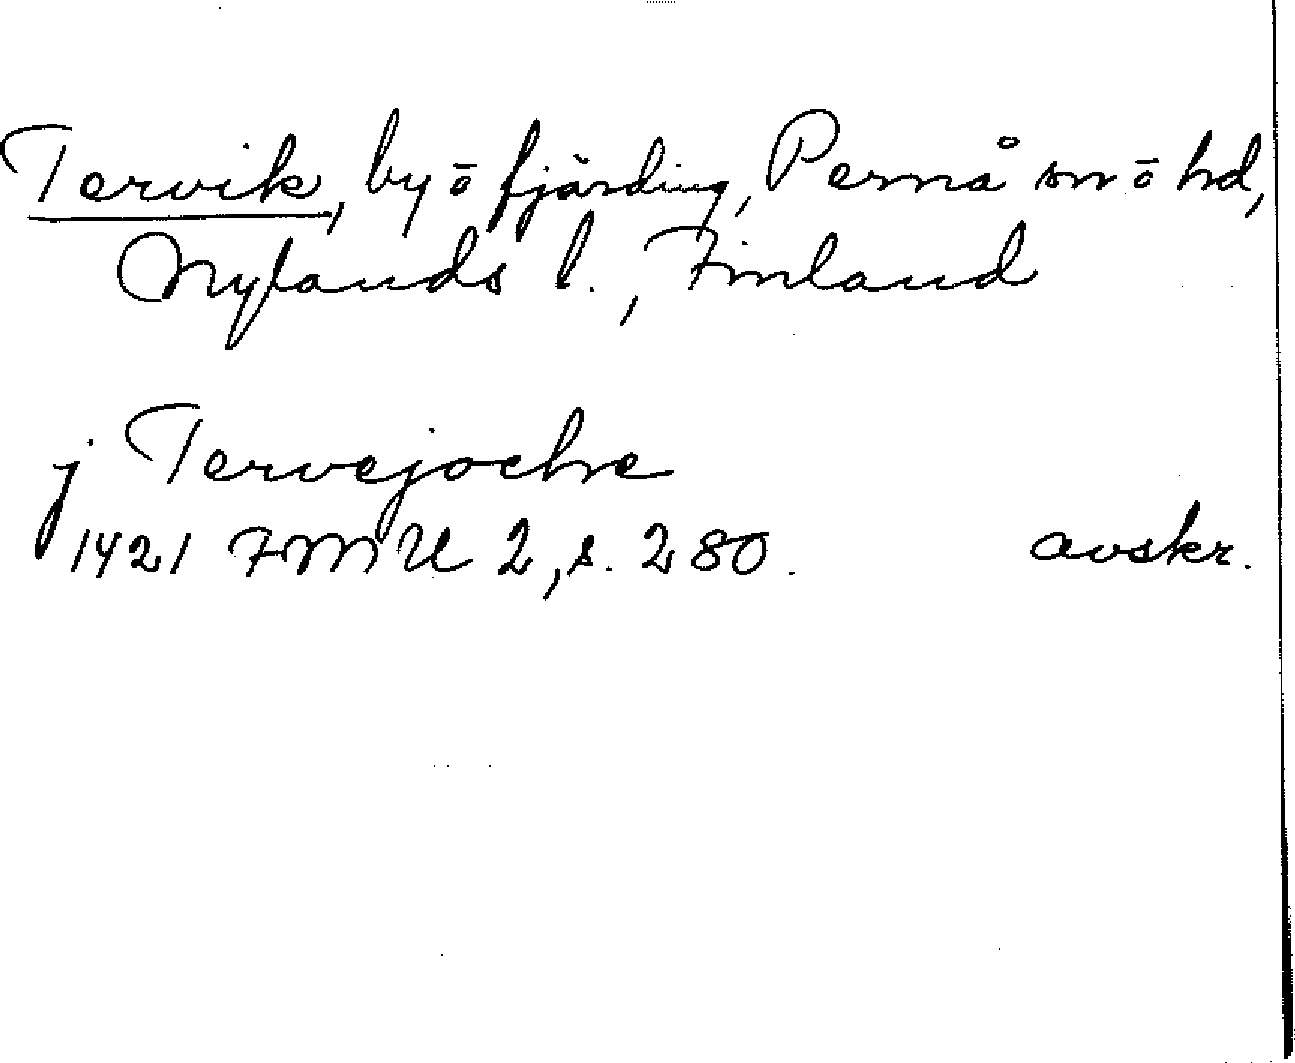 Tervik, by ö fjärding, Pernå sn ö hd,
Nylands l., Finland
j Tervejoche
1421 FMU 2, s. 280. avskr.